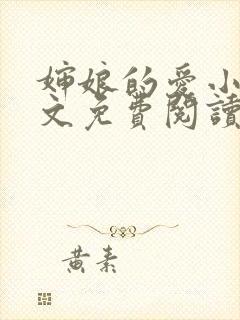 婶娘的爱小
文免费閱讀
黄素